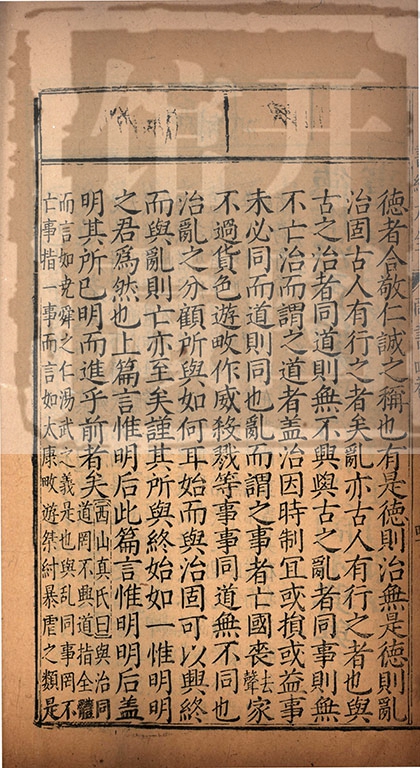 德者合敬仁誠之稱也有是德則治無是德則亂
治固古人有行之者矣亂亦古人有行之者也與
古之治者同道則無不興與古之亂者同事則無
不亡治而謂之道者盖治因時制冝或損或益事
未必同而道則同也亂而謂之事者亡國䘮去聲家
不過貨色遊畋作威殺戮等事事同道無不同也
治亂之分顧所與如何耳始而與治固可以興終
而與亂則亡亦至矣謹其所與終始如一惟明明
之君為然也上篇言惟明后此篇言惟明明后盖
明其所已明而進乎前者矣西山真氏曰與治同
道罔不興道指全體
而言如尭舜之仁湯武之義是也與乱同事罔不
亡事指一事而言如太康畋遊桀紂暴虐之類是